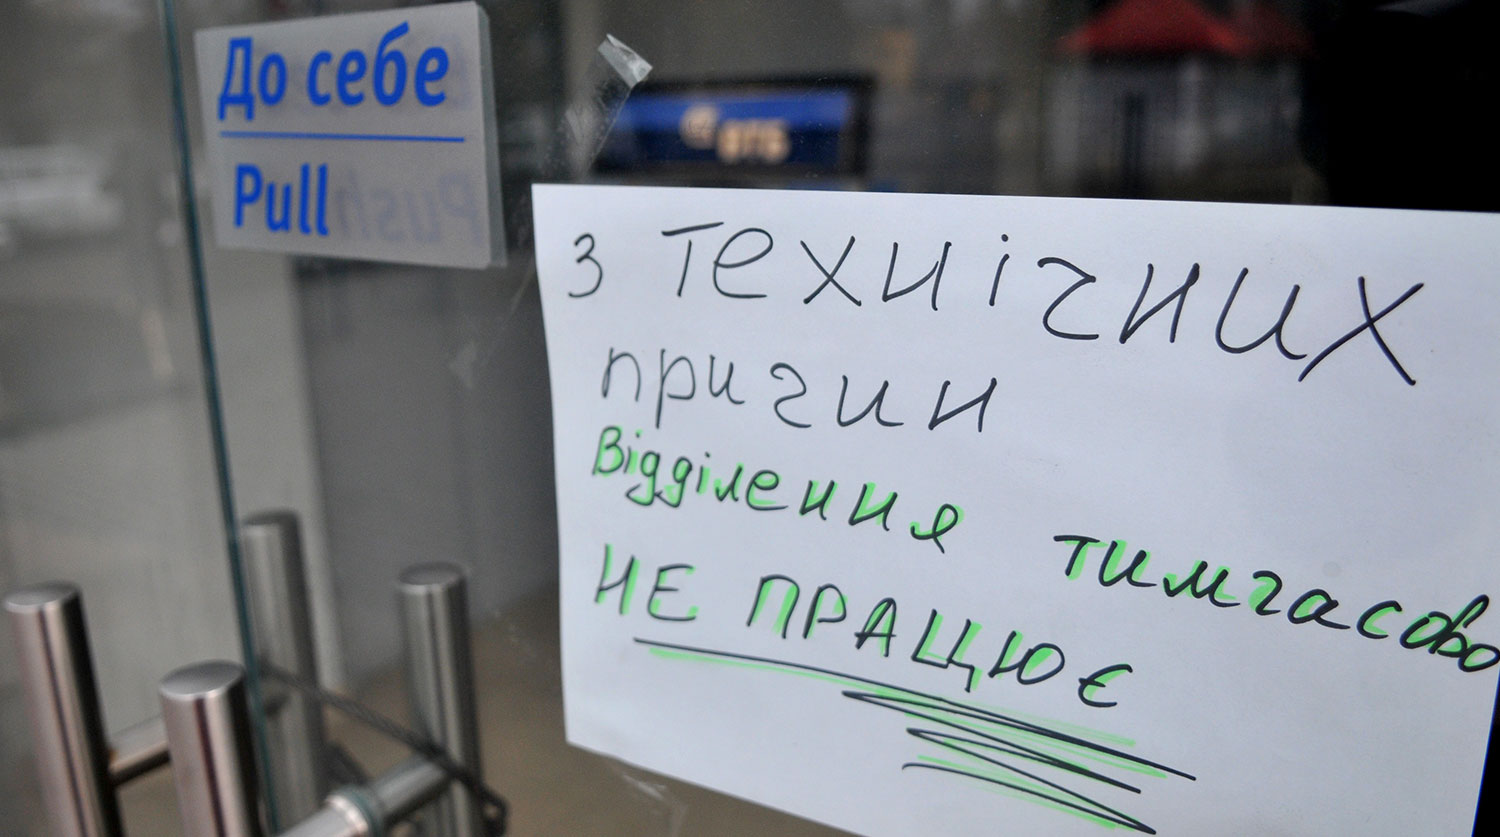 До себе
Pull
Push
ВТБ
З технічних
причин
Відділення тимчасово
НЕ ПРАЦЮЄ